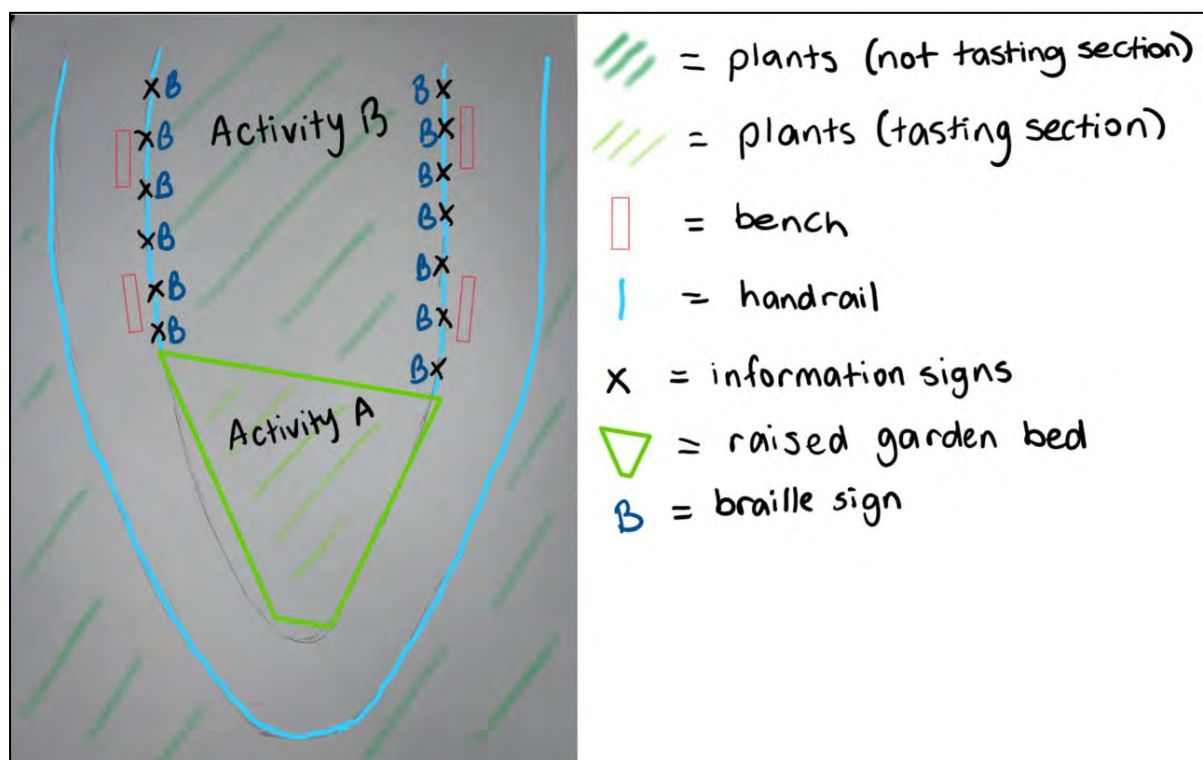 x B
B x
x B
Activity B
B x
x B
B x
x B
B x
x B
B x
x B
B x
B x
Activity A
= plants (not tasting section)
= plants (tasting section)
= bench
= handrail
x = information signs
= raised garden bed
B = braille sign